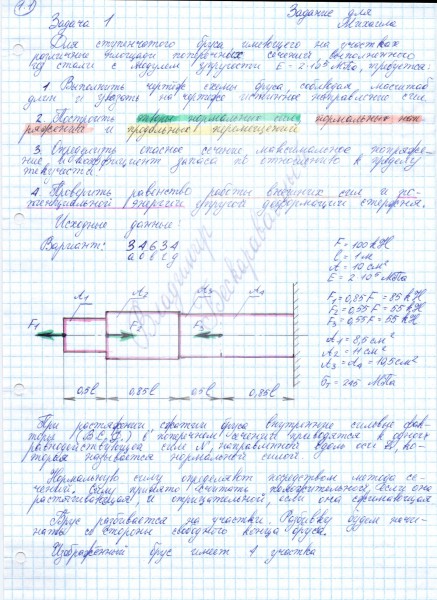 Задание для
Задача 1 Михаила
Для ступенчатого бруса имеющего на участках
различные площади поперечных сечений выполненного
из стали с модулем упругости E=2·10⁵ МПа, требуется:
1. Выполнить чертеж схемы бруса, соблюдая масштаб
длин и указать на чертеже истинное направление сил
2. Построить эпюры нормальных сил, нормальных нап
ряжений и продольных перемещений
3. Определить опасное сечение, максимальное напряже-
ние и коэффициент запаса по отношению к пределу
текучести.
4. Проверить равенство работы внешних сил и по-
тенциальной энергии упругой деформации стержня.
Исходные данные:
Вариант: 3 4 6 3 4
а б в г д
F = 100 кН
l = 1 м
A = 10 см²
E = 2·10⁵ МПа
F₁ = 0,85F = 85 кН
F₂ = 0,55F = 55 кН
F₃ = 0,55F = 55 кН
A₁ = 8,5 см²
A₂ = 11 см²
A₃ = A₄ = 10,5 см²
σт = 245 МПа
Владимир Бескаравайный
A₁ A₂ A₃ A₄
F₁ F₂ F₃
0,5l 0,85l 0,5l 0,85l
При растяжении, сжатии бруса внутренние силовые фак-
торы в поперечном сечении приводятся к одной
равнодействующей силе N, направленной вдоль оси Z, ко-
торая называется нормальной силой.
Нормальную силу определяют посредством метода се-
чений. Силу принято считать положительной, если она
растягивающая и отрицательной, если она сжимающая
Брус разбивается на участки. Разбивку будем начи-
нать со стороны свободного конца бруса.
Изображённый брус имеет 4 участка